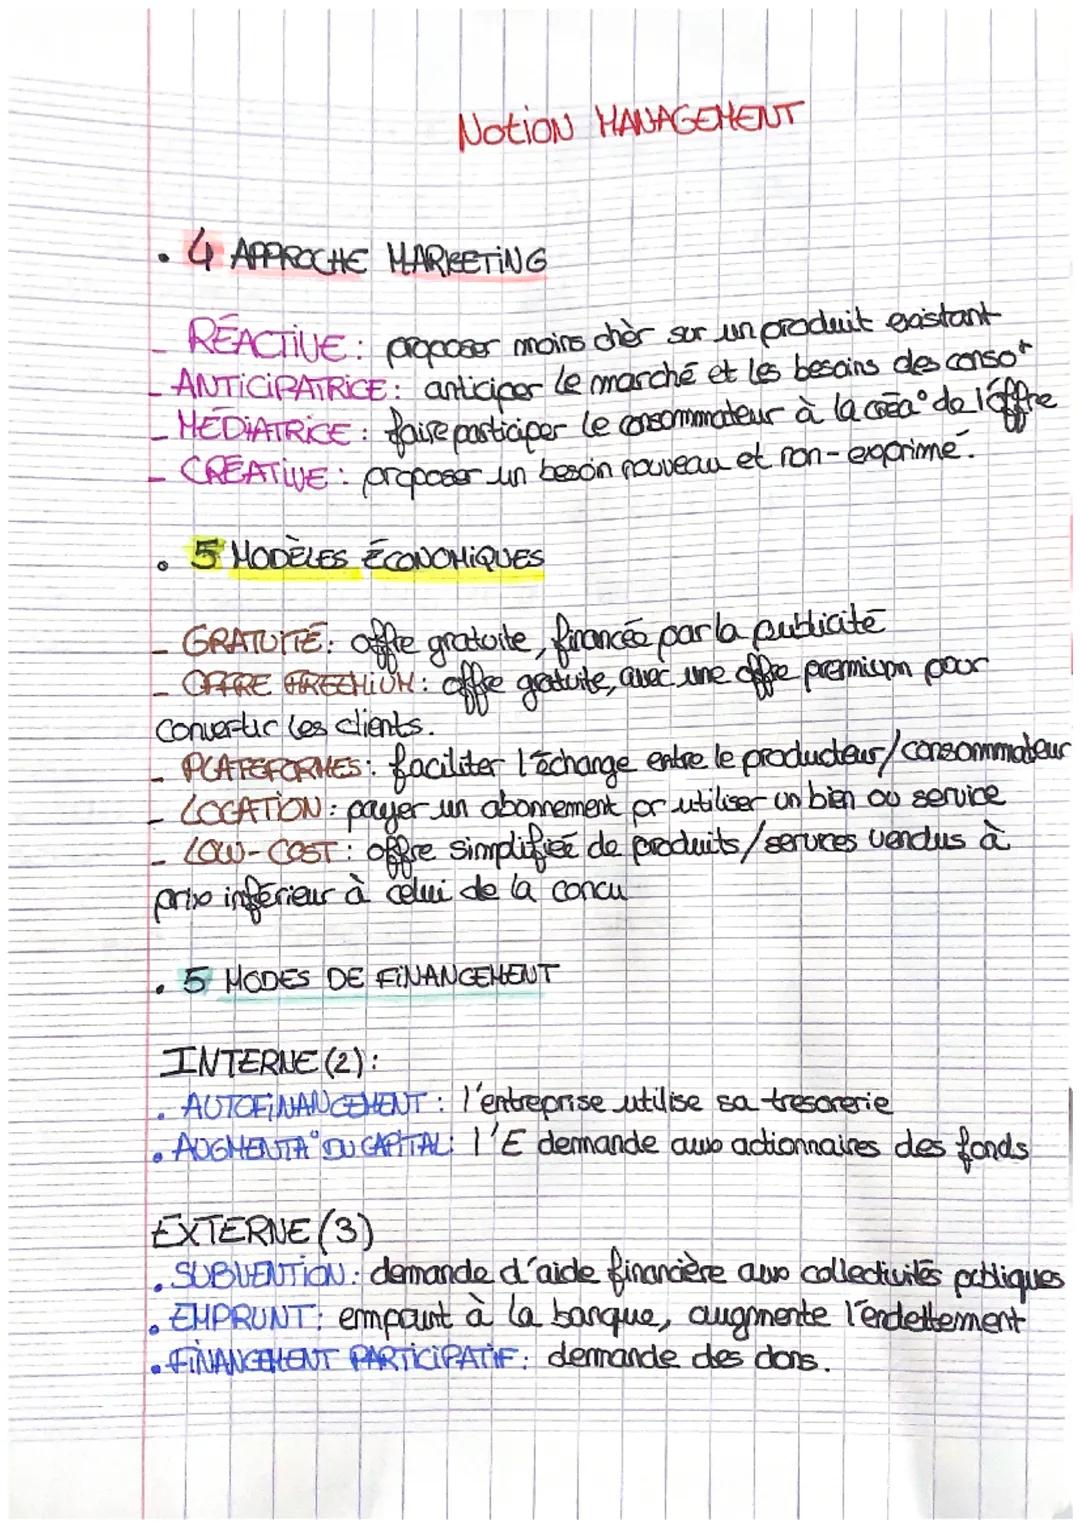 Notion MANAGEMENT
• 4 APPROCHE MARKETING
- RÉACTIVE : proposer moins chèr sur un produit existant
- ANTICIPATRICE : anticiper le marché et les besoins des conso^t
- MÉDIATRICE : faire participer le consommateur à la créa° de l'offre
- CRÉATIVE : proposer un besoin nouveau et non-exprimé.
• 5 MODÈLES ÉCONOMIQUES
- GRATUITÉ : offre gratuite, financée par la publicité
- OFFRE FREEMIUM : offre gratuite, avec une offre premium pour
convertir les clients.
- PLATEFORMES : faciliter l'échange entre le producteur/consommateur
- LOCATION : payer un abonnement pr utiliser un bien ou service
- LOW-COST : offre simplifiée de produits/services vendus à
prix inférieur à celui de la concu
• 5 MODES DE FINANCEMENT
INTERNE (2) :
• AUTOFINANCEMENT : l'entreprise utilise sa tresorerie
• AUGMENTA° DU CAPITAL : l'E demande aux actionnaires des fonds
EXTERNE (3)
• SUBVENTION : demande d'aide financière aux collectivités publiques
• EMPRUNT : emprunt à la banque, augmente l'endettement
• FINANCEMENT PARTICIPATIF : demande des dons.